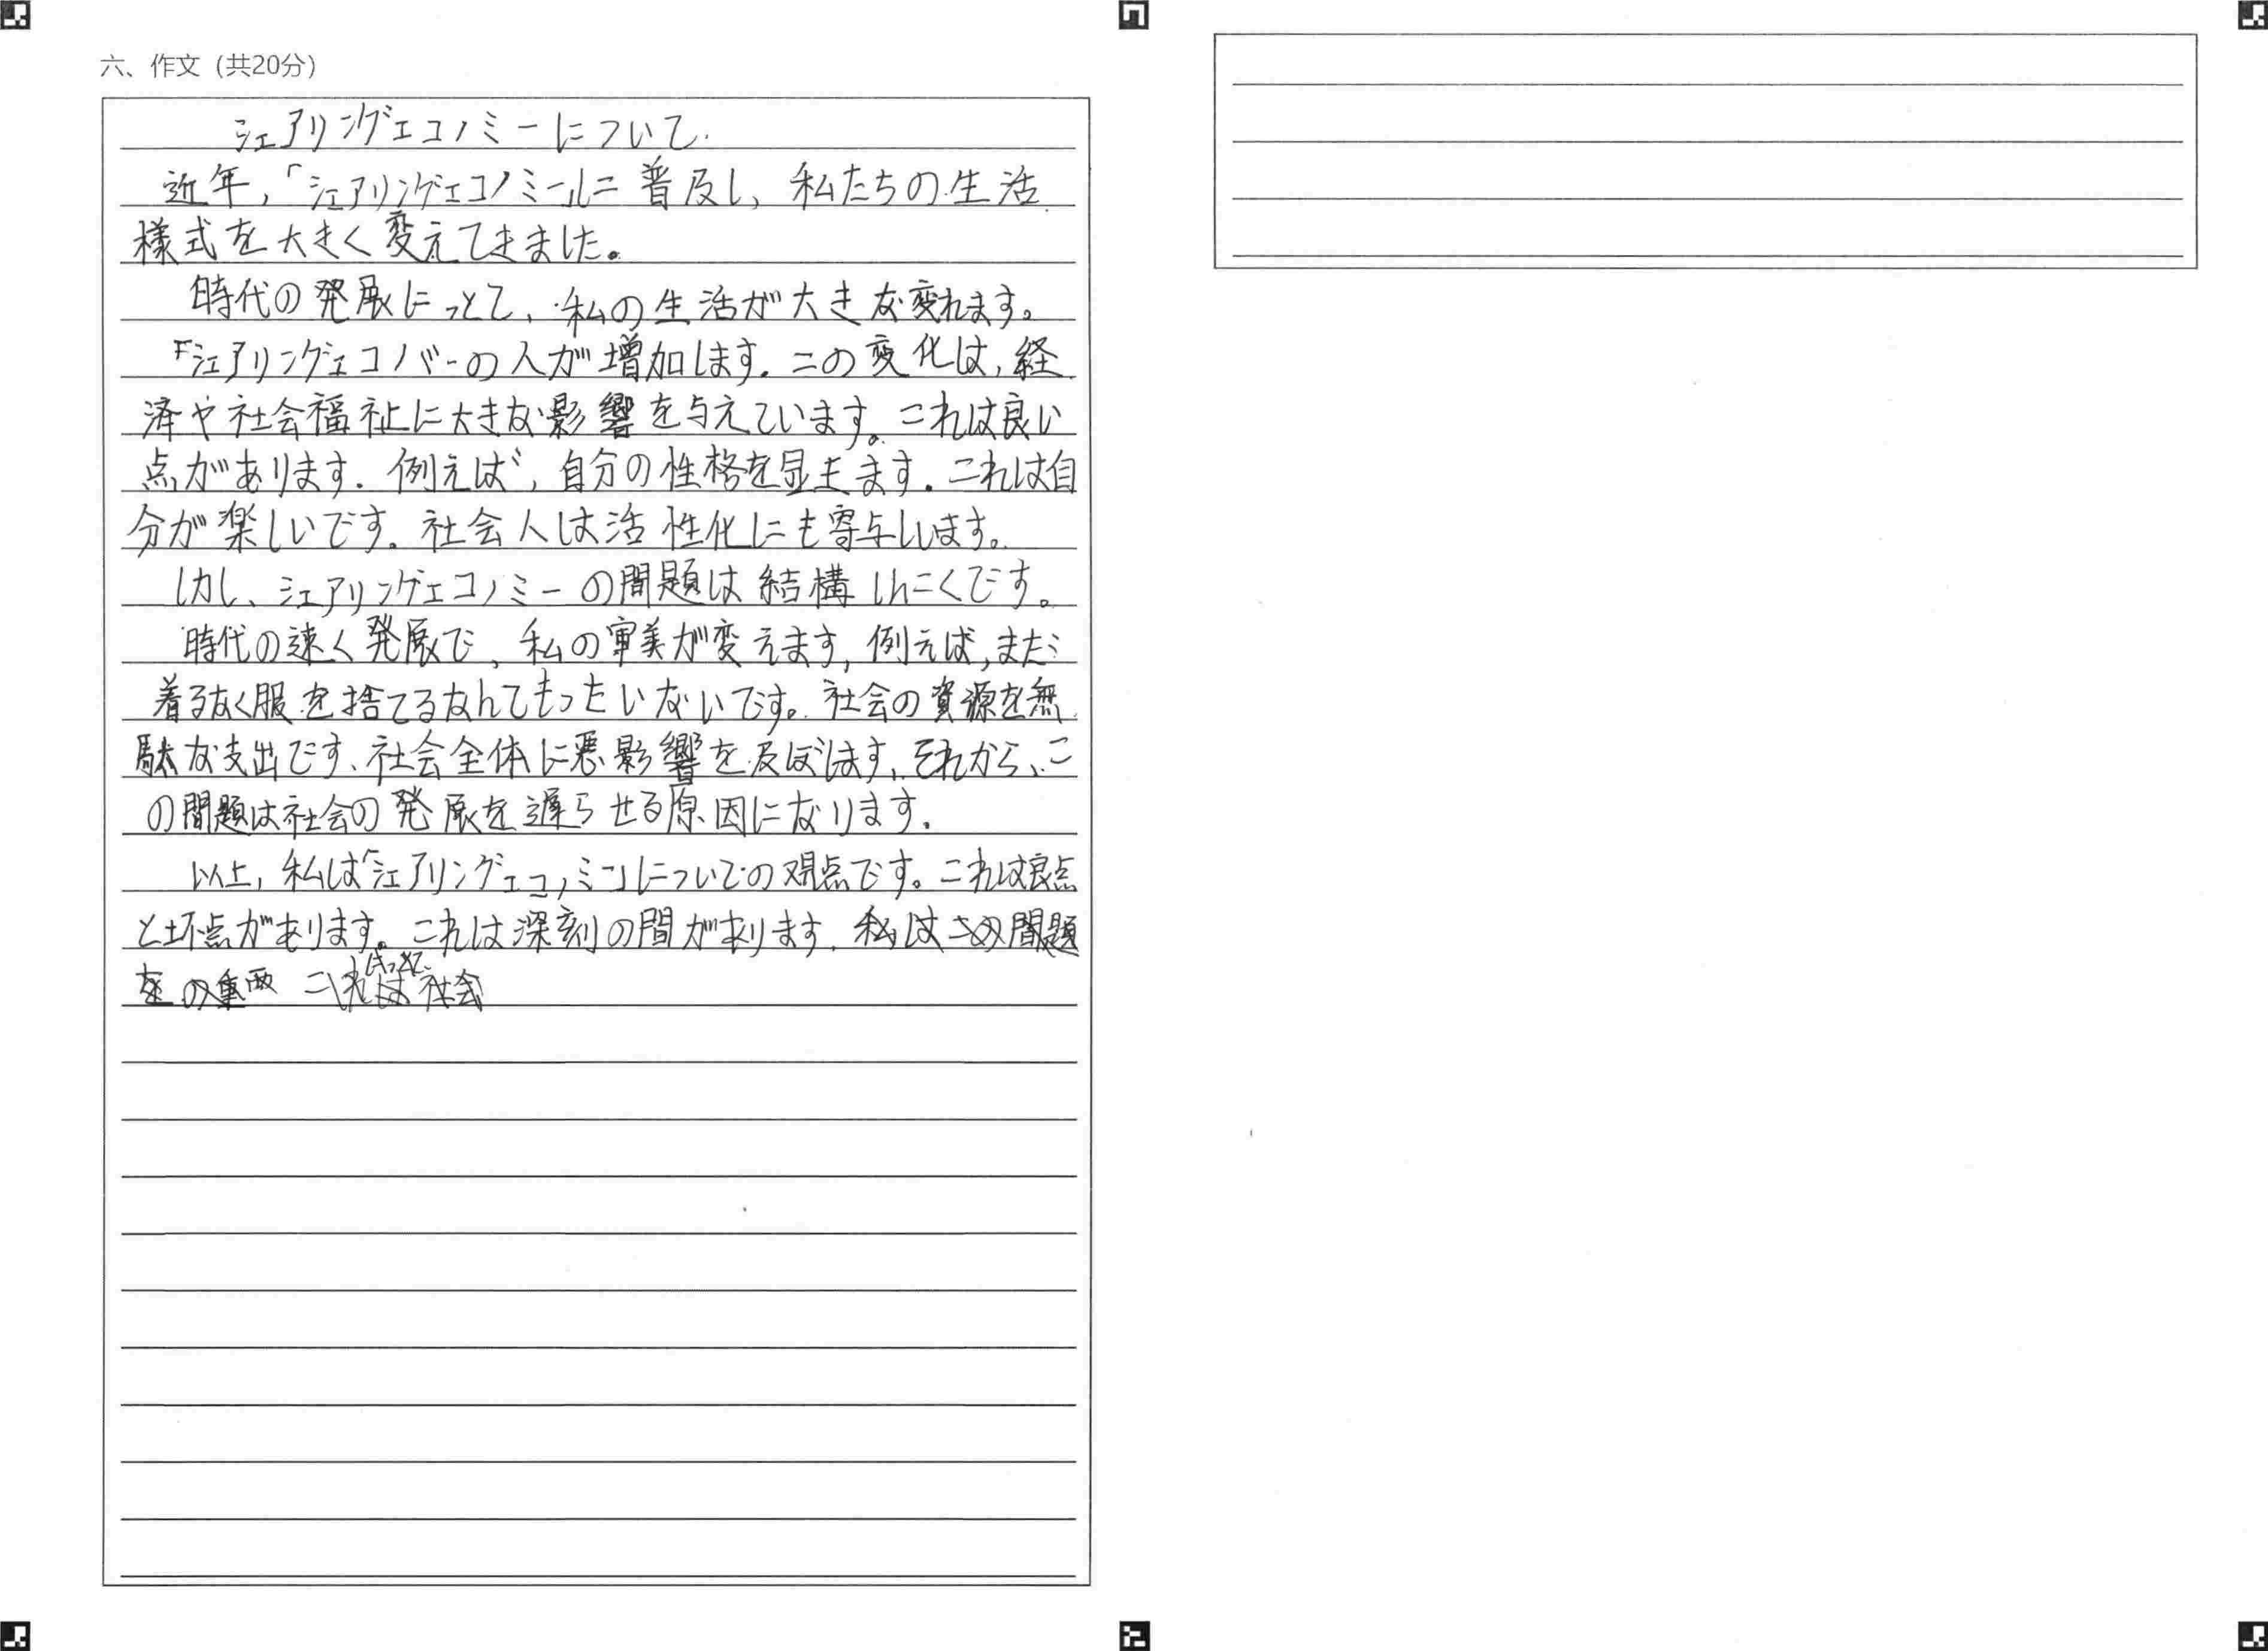 六、作文（共20分）
シェアリングエコノミーについて.
近年,「シェアリングエコノミー」に普及し、私たちの生活
様式を大きく変えてきました。
時代の発展にっとて、私の生活が大きな変れます。
「シェアリングエコノミーの人が増加します. この変化は,経
済や社会福祉に大きな影響を与えています。これは良い
点があります. 例えば,自分の性格を显きます. これは自
分が楽しいです. 社会人は活性化にも寄与します。
しかし、シェアリングエコノミーの問題は結構しんこくです。
時代の速く発展で、私の审美が変えます, 例えば,まだ
着るなく服を捨てるなんてもったいないです。社会の資源を無
駄な支出です、社会全体に悪影響を及ぼします, それから、こ
の問題は社会の発展を遅らせる原因になります.
以上, 私は「シェアリングエコノミー」についての观点です。これは良点
と坏点があります。これは深刻の間があります.